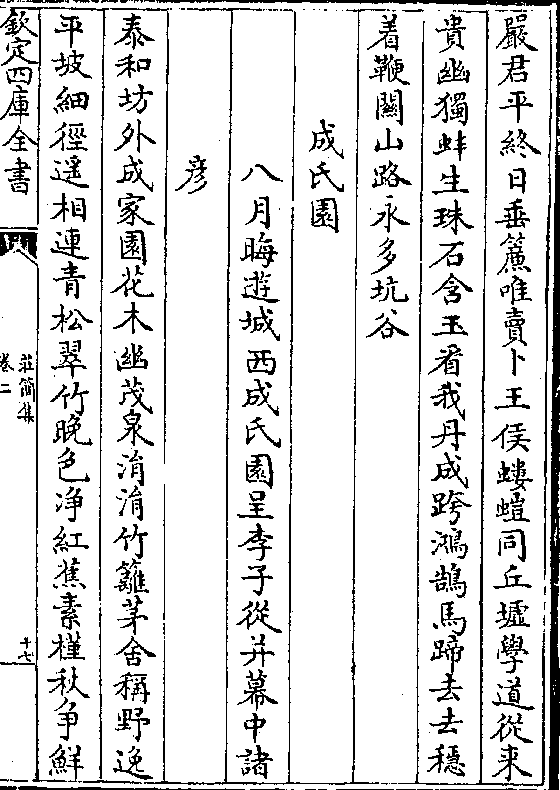 嚴君平終日垂簾唯賣卜王侯螻螘同丘墟學道從来
貴幽獨蚌生珠石含玉看我丹成跨鴻鵠馬蹄去去穩
着鞭關山路永多坑谷
成氏園
八月晦遊城西成氏園呈李子從并幕中諸
彦
泰和坊外成家園花木幽茂泉涓涓竹籬茅舍稱野逸
平坡細徑遥相連青松翠竹晚色净紅蕉素槿秋争鮮
欽定四庫全書
莊簡集
卷二
十七